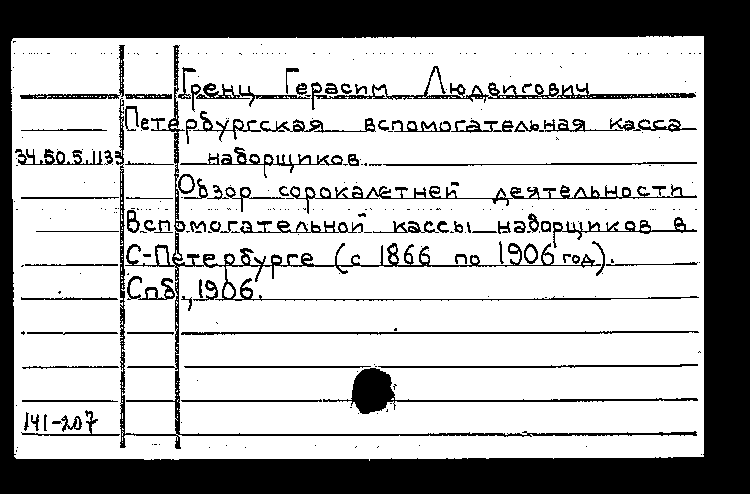 Гренц Герасим Людвигович
Петербургская вспомогательная касса
34.50.5.1133. наборщиков.
Обзор сорокалетней деятельности
Вспомогательной кассы наборщиков в
С-Петербурге (с 1866 по 1906 год).
Спб., 1906.
141-207